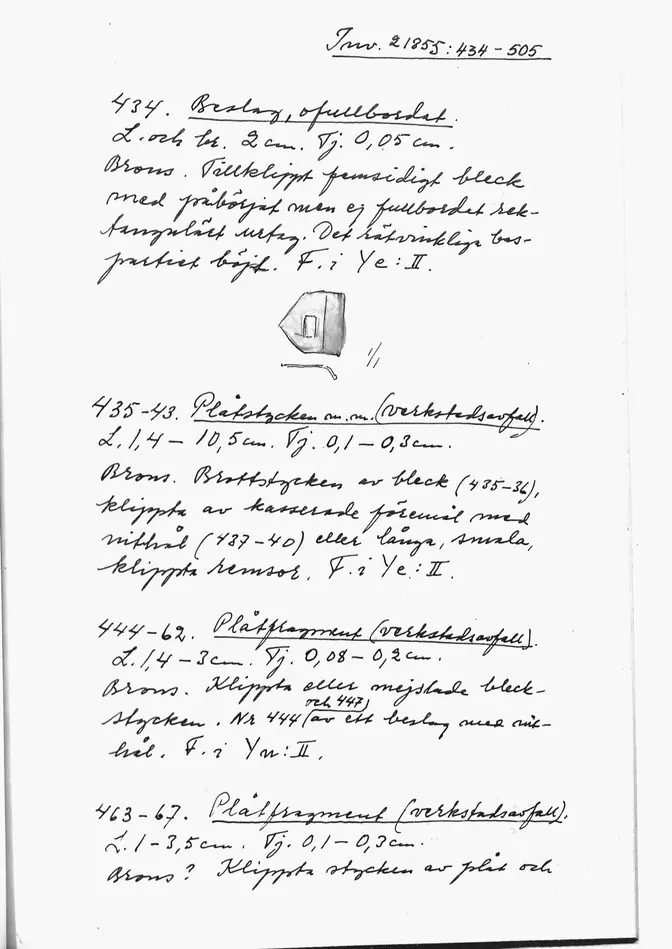 Inv. 21855:434-505
434. Beslag, ofullbordat.
L. och br. 2 cm. Tj. 0,05 cm.
Brons. Tillklippt femsidigt bleck
med påbörjat men ej fullbordat rek-
tangulärt urtag. Det rätvinkliga bas-
partiet böjt. F. i Ye:II.
1/1
435-43. Plåtstycken m.m. (verkstadsavfall).
L. 1,4 - 10,5 cm. Tj. 0,1 - 0,3 cm.
Brons. Brottstycken av bleck (435-36),
klippta av kasserade föremål med
nithål (437-40) eller långa, smala,
klippta remsor. F. i Ye:II.
444-62. Plåtfragment (verkstadsavfall).
L. 1,4 - 3 cm. Tj. 0,08 - 0,2 cm.
Brons. Klippta eller mejslade bleck-
och 447
stycken. Nr 444 av ett beslag med nit-
hål. F. i Yn:II.
463-67. Plåtfragment (verkstadsavfall).
L. 1 - 3,5 cm. Tj. 0,1 - 0,3 cm.
Brons? Klippta stycken av plåt och